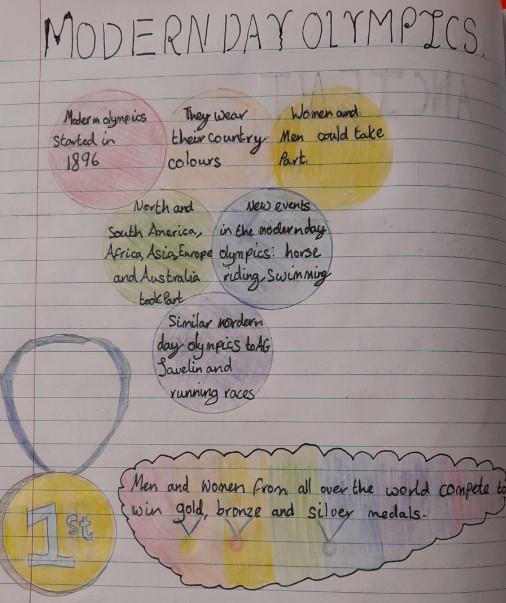 MODERN DAY OLYMPICS.
Modern olympics
started in
1896
They wear
their country
colours
Women and
Men could take
Part.
North and
South America,
Africa, Asia, Europe
and Australia
took Part
New events
in the modern day
olympics: horse
riding, Swimming
Similar mordern
day olympics to AG
Javelin and
running races
1st
Men and women from all over the world compete to
win gold, bronze and silver medals.